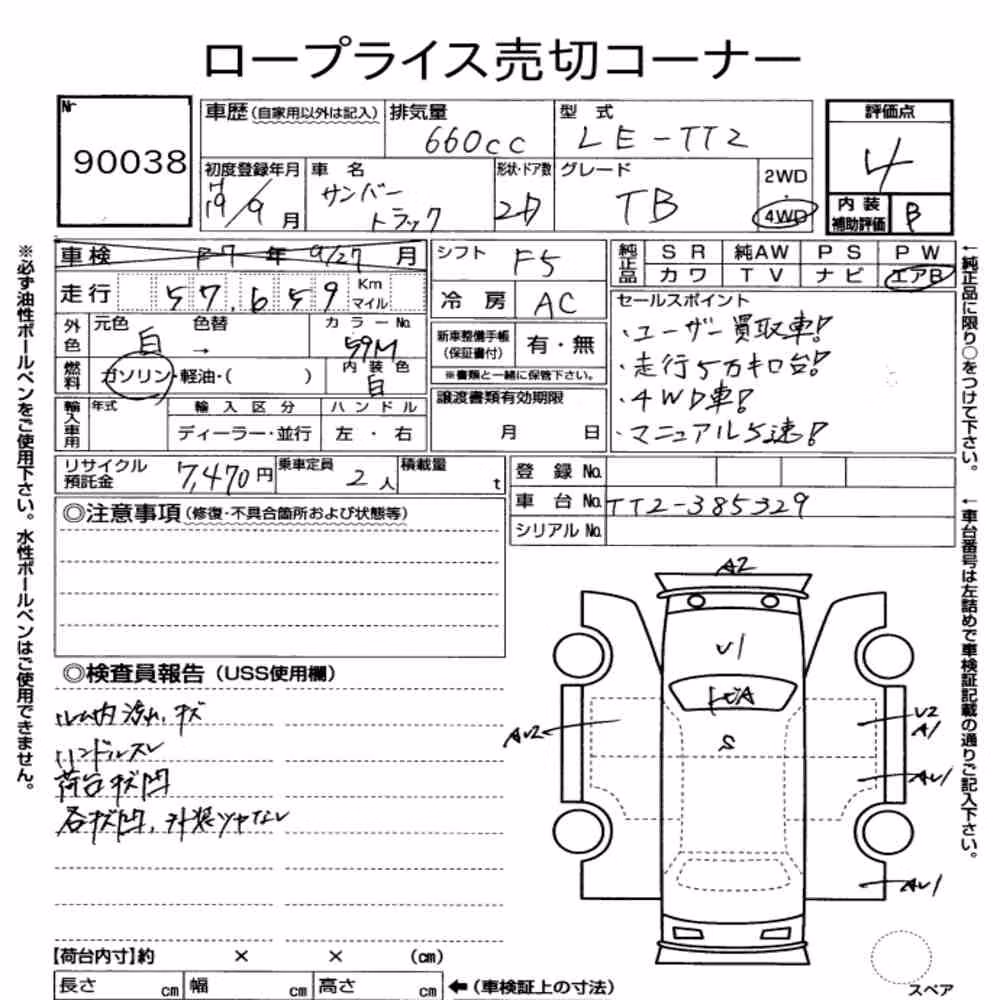 ロープライス売切コーナー
Nr
90038
車歴 (自家用以外は記入)
排気量
660cc
型式
LE-TT2
評価点
4
内装補助評価 B
初度登録年月
H
19/9月
車名
サンバー
トラック
形状・ドア数
2D
グレード
TB
2WD
・
4WD
車検 R7年9/27月
走行 57,659 Km マイル
外色 元色 白 色替 →
カラーNo.
59M
燃料 ガソリン・軽油・( )
内装色
白
輸入車用 年式
輸入区分
ディーラー・並行
ハンドル
左・右
シフト F5
冷房 AC
新車整備手帳
(保証書付)
有・無
※書類と一緒に保管下さい。
譲渡書類有効期限
月 日
純正品 SR 純AW PS PW
カワ TV ナビ エアB
セールスポイント
・ユーザー買取車!
・走行5万キロ台!
・4WD車!
・マニュアル5速!
リサイクル預託金 7,470円
乗車定員 2人
積載量 t
登録No.
車台No. TT2-385329
シリアルNo.
◎注意事項(修復・不具合箇所および状態等)
◎検査員報告 (USS使用欄)
ルーム内汚れ、キズ
ハンドルスレ
荷台キズ凹
各キズ凹、外装ツヤなし
A2
U1
S
AU2
U2
A1
AU1
AU1
【荷台内寸】約 × × (cm)
長さ cm 幅 cm 高さ cm ←(車検証上の寸法)
スペア
※必ず油性ボールペンをご使用下さい。水性ボールペンはご使用できません。
←純正品に限り○をつけて下さい。
←車台番号は左詰めで車検証記載の通りご記入下さい。